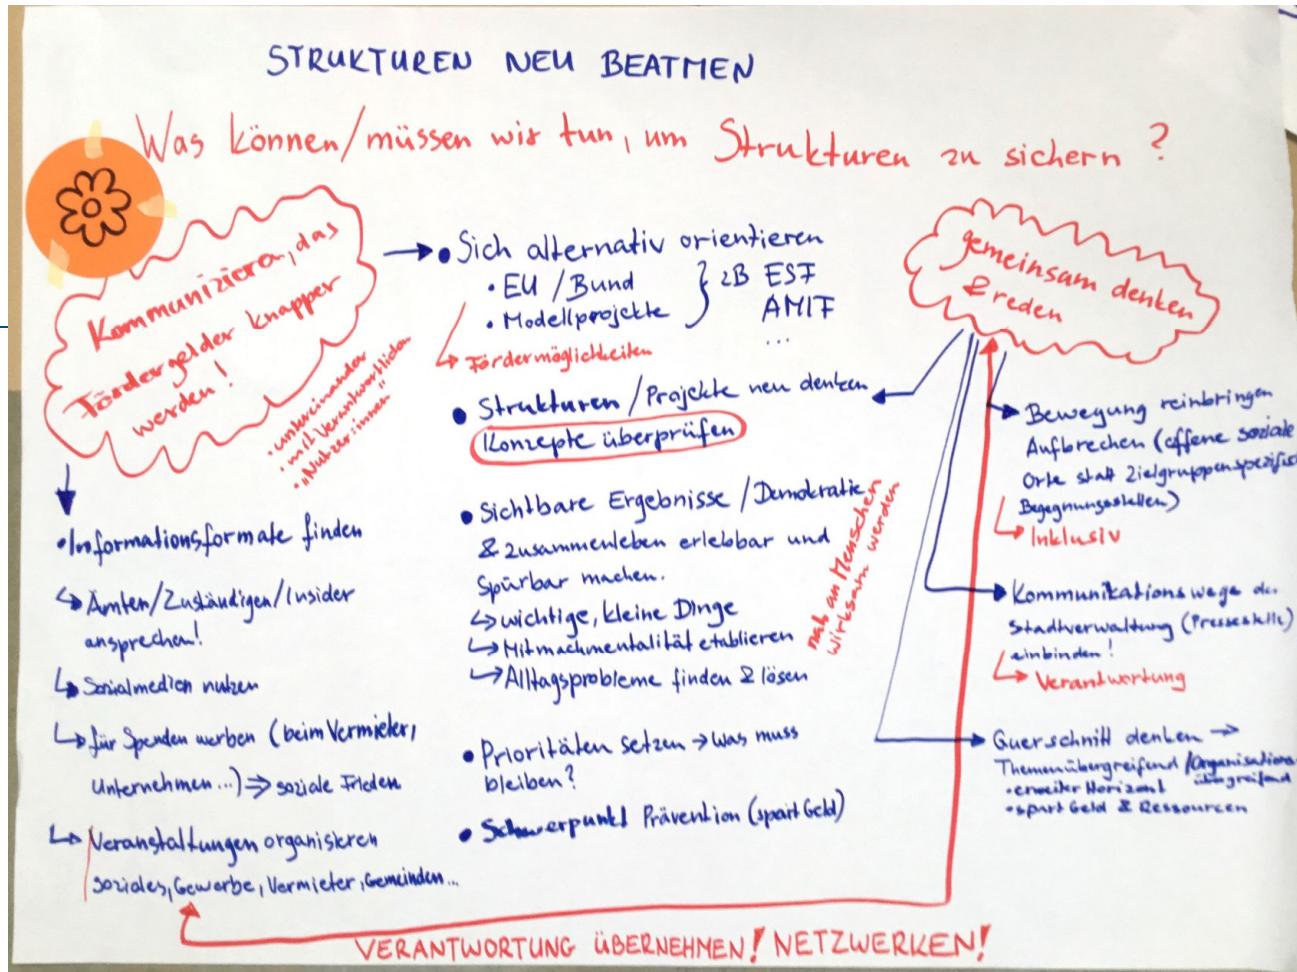 STRUKTUREN NEU BEATMEN
Was können/müssen wir tun, um Strukturen zu sichern?
Kommunizieren, das
Fördergelder knapper
werden!
• untereinander
• mit Verantwortlichen
• "Nutzer:innen"
• Informationsformate finden
↳ Ämter/Zuständigen/Insider
ansprechen!
↳ Sozialmedien nutzen
↳ für Spenden werben (beim Vermieter,
Unternehmen...) ⇒ soziale Frieden
↳ Veranstaltungen organisieren
soziales, Gewerbe, Vermieter, Gemeinden...
• Sich alternativ orientieren
• EU / Bund } zB ESF
• Modellprojekte AMIF
...
↳ Fördermöglichkeiten
• Strukturen / Projekte neu denken
Konzepte überprüfen
• Sichtbare Ergebnisse / Demokratie
& zusammenleben erlebbar und
spürbar machen.
↳ wichtige, kleine Dinge
↳ Mitmachmentalität etablieren
↳ Alltagsprobleme finden & lösen
nah an Menschen
wirksam werden
• Prioritäten setzen → was muss
bleiben?
• Schwerpunkt Prävention (spart Geld)
gemeinsam denken
& reden
Bewegung reinbringen
Aufbrechen (offene soziale
Orte statt Zielgruppenspezifis
Begegnungsstellen)
↳ Inklusiv
Kommunikationswege der
Stadtverwaltung (Pressestelle)
einbinden!
↳ Verantwortung
Querschnitt denken →
Themenübergreifend / Organisations
übergreifend
• erweiter Horizont
• spart Geld & Ressourcen
VERANTWORTUNG ÜBERNEHMEN! NETZWERKEN!